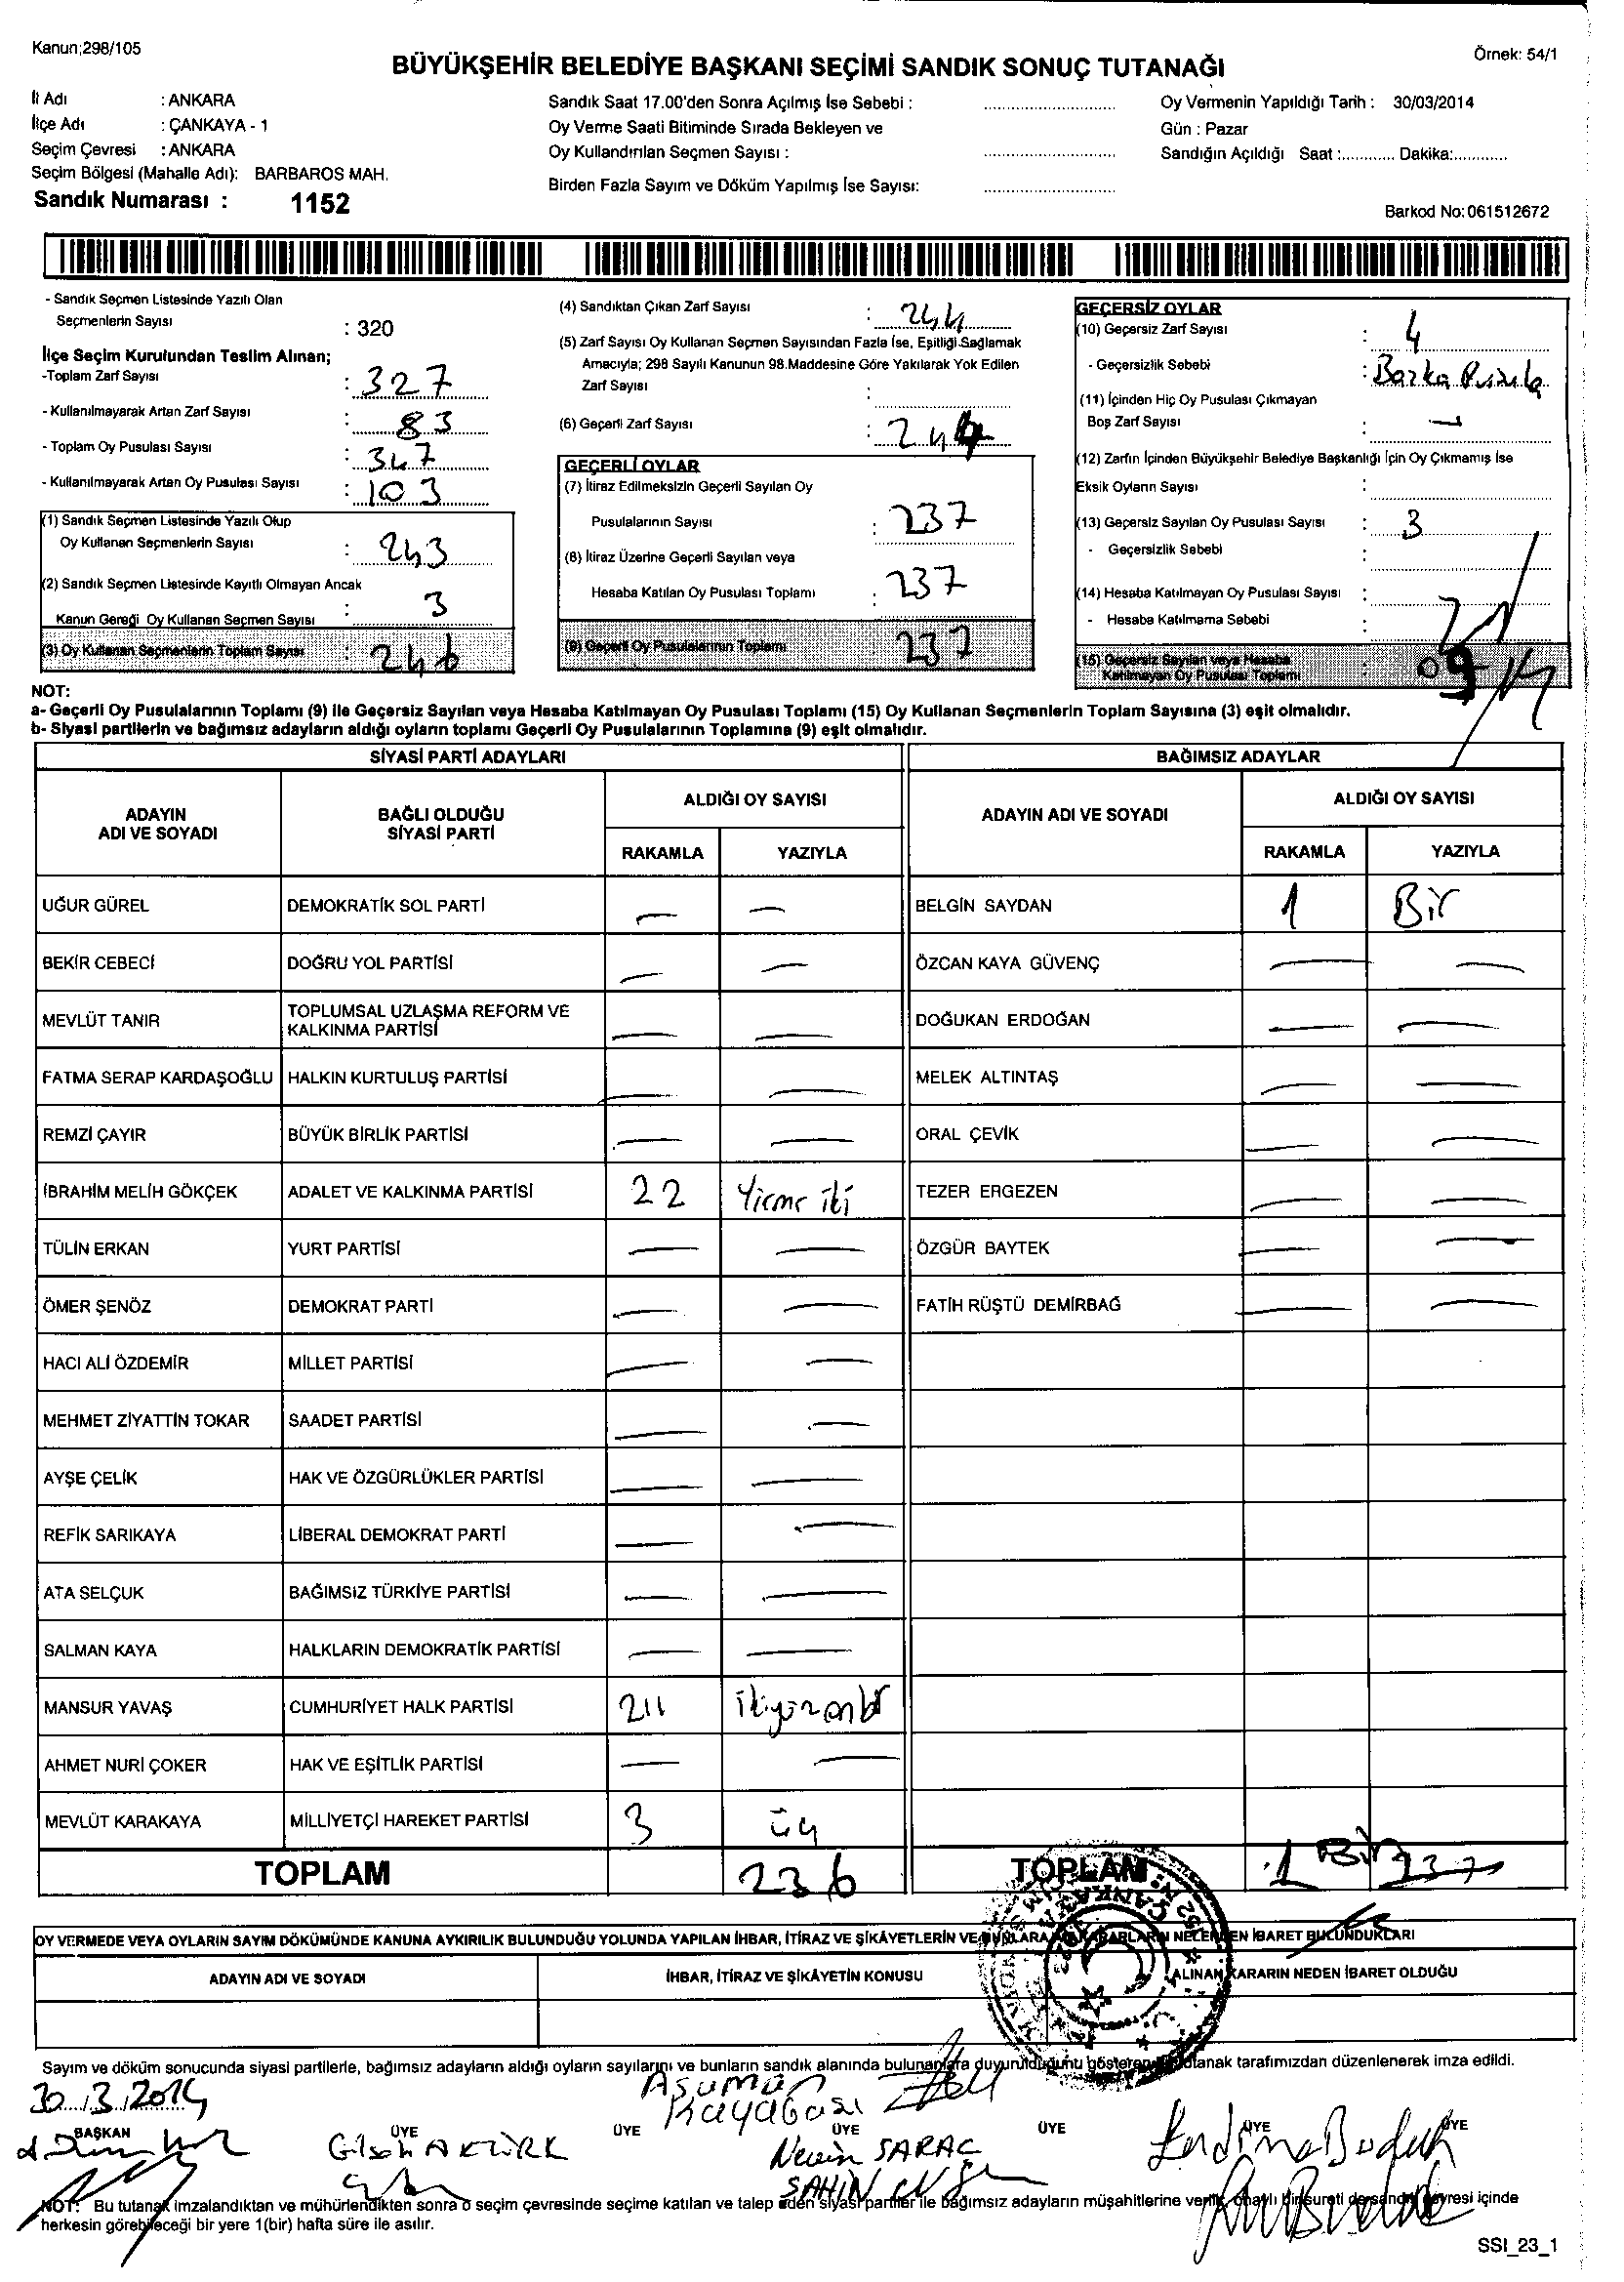 Kanun;298/105
Örnek: 54/1
BÜYÜKŞEHİR BELEDİYE BAŞKANI SEÇİMİ SANDIK SONUÇ TUTANAĞI
İl Adı : ANKARA
İlçe Adı : ÇANKAYA - 1
Seçim Çevresi : ANKARA
Seçim Bölgesi (Mahalle Adı): BARBAROS MAH.
Sandık Numarası : 1152
Sandık Saat 17.00'den Sonra Açılmış İse Sebebi :
Oy Verme Saati Bitiminde Sırada Bekleyen ve
Oy Kullandırılan Seçmen Sayısı :
Birden Fazla Sayım ve Döküm Yapılmış İse Sayısı:
Oy Vermenin Yapıldığı Tarih : 30/03/2014
Gün : Pazar
Sandığın Açıldığı Saat :............ Dakika:............
Barkod No:061512672
- Sandık Seçmen Listesinde Yazılı Olan
Seçmenlerin Sayısı : 320
İlçe Seçim Kurulundan Teslim Alınan;
-Toplam Zarf Sayısı : 327
- Kullanılmayarak Artan Zarf Sayısı : 83
- Toplam Oy Pusulası Sayısı : 347
- Kullanılmayarak Artan Oy Pusulası Sayısı : 103
(1) Sandık Seçmen Listesinde Yazılı Olup
Oy Kullanan Seçmenlerin Sayısı : 243
(2) Sandık Seçmen Listesinde Kayıtlı Olmayan Ancak
Kanun Gereği Oy Kullanan Seçmen Sayısı : 3
(3) Oy Kullanan Seçmenlerin Toplam Sayısı : 246
(4) Sandıktan Çıkan Zarf Sayısı : 244
(5) Zarf Sayısı Oy Kullanan Seçmen Sayısından Fazla İse, Eşitliği Sağlamak
Amacıyla; 298 Sayılı Kanunun 98.Maddesine Göre Yakılarak Yok Edilen
Zarf Sayısı :
(6) Geçerli Zarf Sayısı : 244
GEÇERLİ OYLAR
(7) İtiraz Edilmeksizin Geçerli Sayılan Oy
Pusulalarının Sayısı : 237
(8) İtiraz Üzerine Geçerli Sayılan veya
Hesaba Katılan Oy Pusulası Toplamı : 237
(9) Geçerli Oy Pusulalarının Toplamı 237
GEÇERSİZ OYLAR
(10) Geçersiz Zarf Sayısı : 4
- Geçersizlik Sebebi : Başka Pusula
(11) İçinden Hiç Oy Pusulası Çıkmayan
Boş Zarf Sayısı : —
(12) Zarfın İçinden Büyükşehir Belediye Başkanlığı İçin Oy Çıkmamış İse
Eksik Oyların Sayısı :
(13) Geçersiz Sayılan Oy Pusulası Sayısı : 3
- Geçersizlik Sebebi :
(14) Hesaba Katılmayan Oy Pusulası Sayısı :
- Hesaba Katılmama Sebebi :
(15) Geçersiz Sayılan veya Hesaba
Katılmayan Oy Pusulası Toplamı : 09
NOT:
a- Geçerli Oy Pusulalarının Toplamı (9) ile Geçersiz Sayılan veya Hesaba Katılmayan Oy Pusulası Toplamı (15) Oy Kullanan Seçmenlerin Toplam Sayısına (3) eşit olmalıdır.
b- Siyasi partilerin ve bağımsız adayların aldığı oyların toplamı Geçerli Oy Pusulalarının Toplamına (9) eşit olmalıdır.
SİYASİ PARTİ ADAYLARI
ADAYIN ADI VE SOYADI
BAĞLI OLDUĞU SİYASİ PARTİ
ALDIĞI OY SAYISI
RAKAMLA YAZIYLA
UĞUR GÜREL DEMOKRATİK SOL PARTİ — —
BEKİR CEBECİ DOĞRU YOL PARTİSİ — —
MEVLÜT TANIR TOPLUMSAL UZLAŞMA REFORM VE KALKINMA PARTİSİ — —
FATMA SERAP KARDAŞOĞLU HALKIN KURTULUŞ PARTİSİ — —
REMZİ ÇAYIR BÜYÜK BİRLİK PARTİSİ — —
İBRAHİM MELİH GÖKÇEK ADALET VE KALKINMA PARTİSİ 22 Yirmi iki
TÜLİN ERKAN YURT PARTİSİ — —
ÖMER ŞENÖZ DEMOKRAT PARTİ — —
HACI ALİ ÖZDEMİR MİLLET PARTİSİ — —
MEHMET ZİYATTİN TOKAR SAADET PARTİSİ — —
AYŞE ÇELİK HAK VE ÖZGÜRLÜKLER PARTİSİ — —
REFİK SARIKAYA LİBERAL DEMOKRAT PARTİ — —
ATA SELÇUK BAĞIMSIZ TÜRKİYE PARTİSİ — —
SALMAN KAYA HALKLARIN DEMOKRATİK PARTİSİ — —
MANSUR YAVAŞ CUMHURİYET HALK PARTİSİ 211 ikiyüzonbir
AHMET NURİ ÇOKER HAK VE EŞİTLİK PARTİSİ — —
MEVLÜT KARAKAYA MİLLİYETÇİ HAREKET PARTİSİ 3 üç
TOPLAM 236
BAĞIMSIZ ADAYLAR
ADAYIN ADI VE SOYADI
ALDIĞI OY SAYISI
RAKAMLA YAZIYLA
BELGİN SAYDAN 1 Bir
ÖZCAN KAYA GÜVENÇ — —
DOĞUKAN ERDOĞAN — —
MELEK ALTINTAŞ — —
ORAL ÇEVİK — —
TEZER ERGEZEN — —
ÖZGÜR BAYTEK — —
FATİH RÜŞTÜ DEMİRBAĞ — —
TOPLAM 1 Bir 237
OY VERMEDE VEYA OYLARIN SAYIM DÖKÜMÜNDE KANUNA AYKIRILIK BULUNDUĞU YOLUNDA YAPILAN İHBAR, İTİRAZ VE ŞİKÂYETLERİN VE BUNLARA KARARLARIN NELERDEN İBARET BULUNDUKLARI
ADAYIN ADI VE SOYADI
İHBAR, İTİRAZ VE ŞİKÂYETİN KONUSU
ALINAN KARARIN NEDEN İBARET OLDUĞU
Sayım ve döküm sonucunda siyasi partilerle, bağımsız adayların aldığı oyların sayılarını ve bunların sandık alanında bulunanlara duyurulduğunu gösteren tutanak tarafımızdan düzenlenerek imza edildi.
30/3/2014
Asuman Kayabası
BAŞKAN ÜYE ÜYE ÜYE ÜYE ÜYE ÜYE
AKTÜRK
Nevin SARAÇ
ŞAHİN
NOT: Bu tutanak imzalandıktan ve mühürlendikten sonra o seçim çevresinde seçime katılan ve talep eden siyasi partiler ile bağımsız adayların müşahitlerine verilir, onaylı bir sureti de sandık çevresi içinde
herkesin görebileceği bir yere 1(bir) hafta süre ile asılır.
SSI_23_1